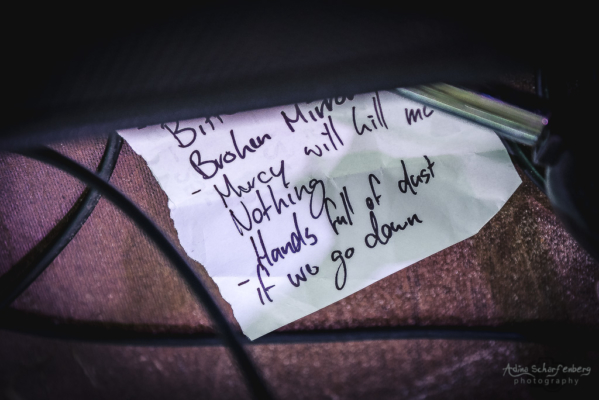 Broken Mirror
- Mercy will kill me
Nothing
Hands full of dust
- if we go down
Adina Scharfenberg
photography